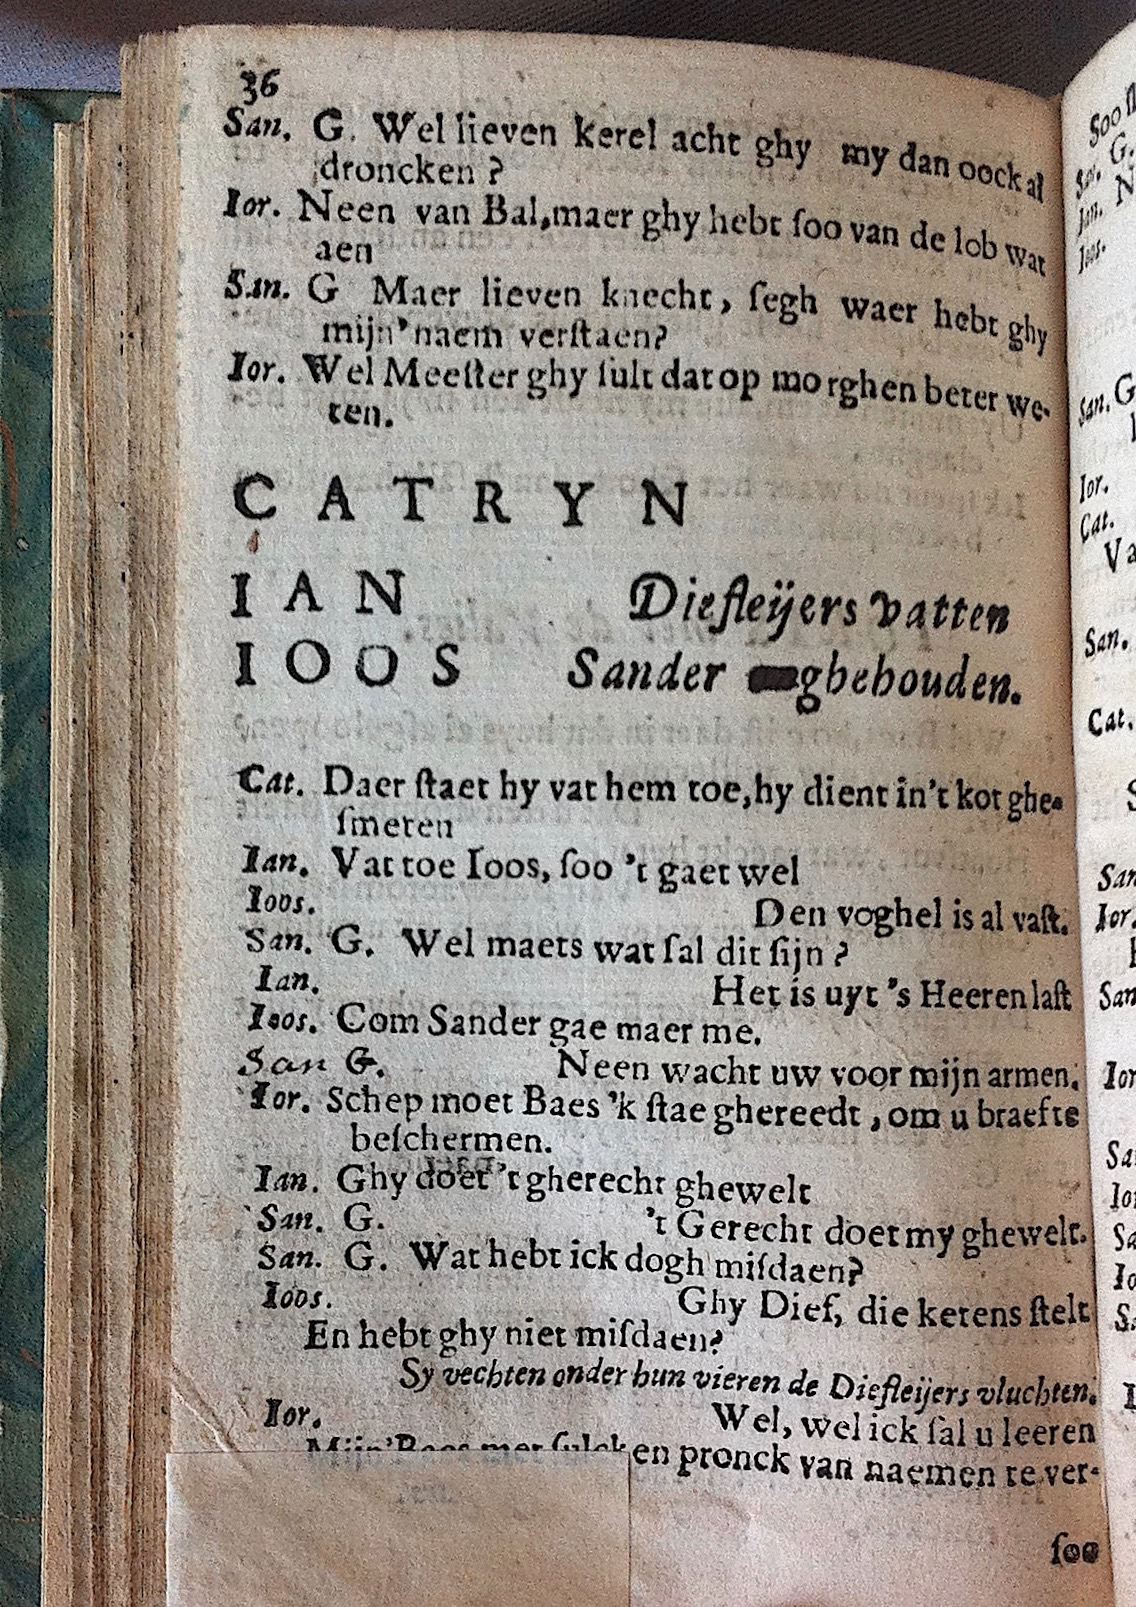 36
San. G. Wel lieven kerel acht ghy my dan oock al
droncken ?
Ior. Neen van Bal, maer ghy hebt ſoo van de lob wat
aen
San. G Maer lieven knecht, ſegh waer hebt ghy
mijn' naem verſtaen?
Ior. Wel Meeſter ghy ſult dat op morghen beter we-
ten.
CATRYN
IAN Diefleijers vatten
IOOS Sander ghehouden.
Cat. Daer ſtaet hy vat hem toe, hy dient in't kot ghe-
ſmeten
Ian. Vat toe Ioos, ſoo 't gaet wel
Ioos. Den voghel is al vaſt.
San. G. Wel maets wat ſal dit ſijn ?
Ian. Het is uyt 's Heeren laſt
Ioos. Com Sander gae maer me.
San G. Neen wacht uw voor mijn armen.
Ior. Schep moet Baes 'k ſtae ghereedt, om u braef te
beſchermen.
Ian. Ghy doet 't gherecht ghewelt
San. G. 't Gerecht doet my ghewelt.
San. G. Wat hebt ick dogh miſdaen?
Ioos. Ghy Dief, die ketens ſtelt
En hebt ghy niet miſdaen?
Sy vechten onder hun vieren de Diefleijers vluchten.
Ior. Wel, wel ick ſal u leeren
Mijn' Baes met ſulcken pronck van naemen te ver-
ſoo
Soo
G.
San.
N
Ian.
Ioos.
San. G
Ior.
Cat.
Va
San.
Cat.
S
San
Ior.
San
Ior
Sa
Io
Sa
Io
S